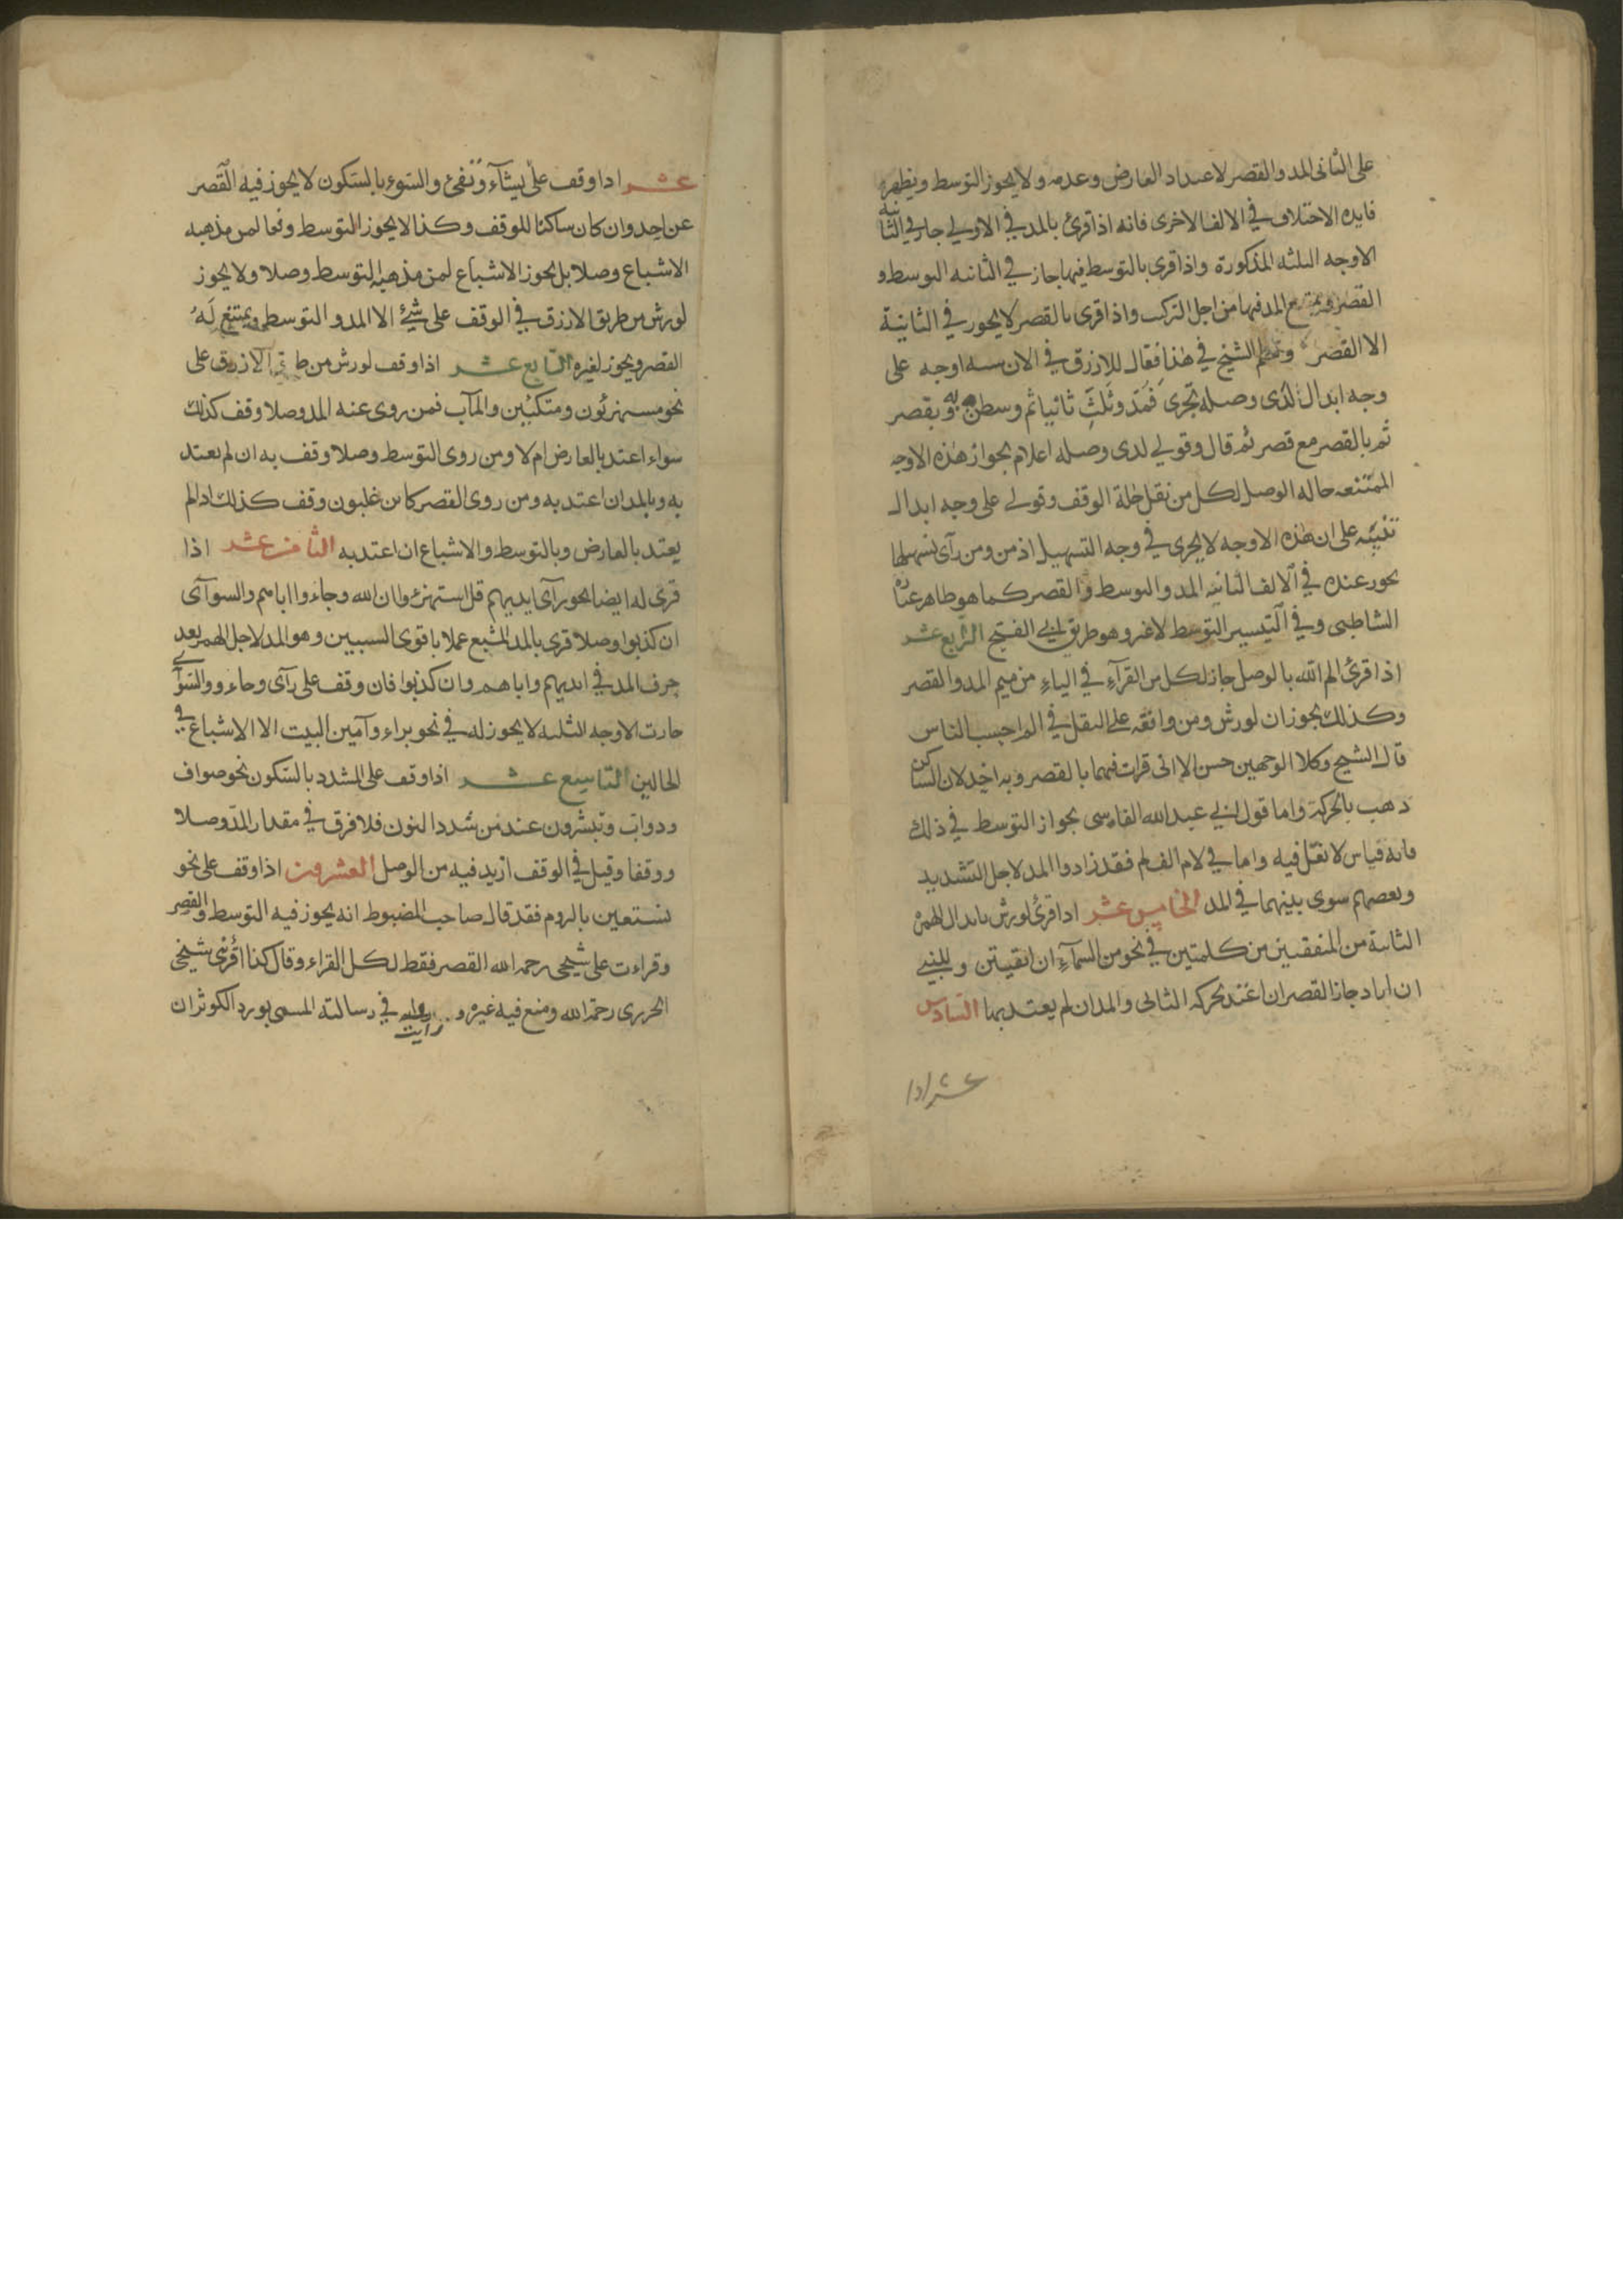 على الثانى المد والقصر لاعتداد العارض وعدمه ولا يجوز التوسط ويظهر
فايده الاختلاف في الالف الاخرى فانه اذا قرئ بالمد في الاولي جاز في الثانية
الاوجه الثلثه المذكورة واذا قرى بالتوسط فيها جاز في الثانيه التوسط و
القصر ويمتنع المد فيها من اجل التركب واذا قرى بالقصر لا يجوز في الثانية
الا القصر ونظم الشيخ في هذا فقال للازرق في الان سته اوجه على
وجه ابدال لدى وصله تجرى فمد وثلث ثانيا ثم وسطن به وبقصر
ثم بالقصر مع قصر ثم قال وقولي لدى وصله اعلام بجواز هذه الاوجه
الممتنعه حاله الوصل لكل من نقل حالة الوقف وقولي على وجه ابدال
تنبيه على ان هذه الاوجه لا يجرى في وجه التسهيل اذ من ومن رآى تسهيلها
يجوز عنده في الالف الثانيه المد والتوسط والقصر كما هو ظاهر عبارة
الشاطبى وفي التيسير التوسط لاغير وهو طريق ابي الفتح الرابع عشر
اذا قرئ الم الله بالوصل جاز لكل من القرآء في الياء من ميم المد والقصر
وكذلك يجوزان لورش ومن وافقه على النقل في الم احسب الناس
قال الشيخ وكلا الوجهين حسن الا انى قرات فيهما بالقصر وبه اخذ لان الساكن
ذهب بالحركة واما قول ابي عبد الله الفاسى بجواز التوسط في ذلك
فانه قياس لا نقل فيه واما في لام الف لم فقد زادوا المد لاجل التشديد
وبعضهم سوى بينهما في المد الخامس عشر اذا قرئ لورش بابدال الهمزة
الثانية من المتفقتين من كلمتين في نحو من السمآء ان اتقيتن وللنبي
ان اراد جاز القصر ان اعتد بحركه الثانى والمد ان لم يعتد بها السادس
عشر اذا
عشر اذا وقف على يشآء وتفئ والسوء بالسكون لا يجوز فيه القصر
عن احد وان كان ساكنا للوقف وكذا لا يجوز التوسط وقفا لمن مذهبه
الاشباع وصلا بل يجوز الاشباع لمن مذهبه التوسط وصلا ولا يجوز
لورش من طريق الازرق في الوقف على شئ الا المد والتوسط ويمتنع له
القصر ويجوز لغيره السابع عشر اذا وقف لورش من طريق الازرق على
نحو مستهزئون ومتكئين والمآب فمن روى عنه المد وصلا وقف كذلك
سواء اعتد بالعارض ام لا ومن روى التوسط وصلا وقف به ان لم يعتد
به وبالمد ان اعتد به ومن روى القصر كابن غلبون وقف كذلك اذا لم
يعتد بالعارض وبالتوسط والاشباع ان اعتد به الثامن عشر اذا
قرئ له ايضا نحو رآى ايديهم قل استهزءوا ان الله وجاءوا اباهم والسوآى
ان كذبوا وصلا قرى بالمد المشبع عملا باقوى السببين وهو المد لاجل الهمز بعد
حرف المد في ايديهم واباهم وان كذبوا فان وقف على رآى وجاءو والسوآى
جازت الاوجه الثلثه لا يجوز له في نحو براء وآمين البيت الا الاشباع في
الحالين التاسع عشر اذا وقف على المشدد بالسكون نحو صواف
ودواب وتبشرون عند من شدد النون فلا فرق في مقدار المد وصلا
ووقفا وقيل في الوقف ازيد فيه من الوصل العشرون اذا وقف على نحو
نستعين بالروم فقد قال صاحب المضبوط انه يجوز فيه التوسط والقصر
وقراءت على شيخى رحمه الله القصر فقط لكل القراء وقال كذا اقرئنى شيخى
الحريرى رحمة الله ومنع فيه غيره و رايت في رسالته المسمى بورد الكوثر ان